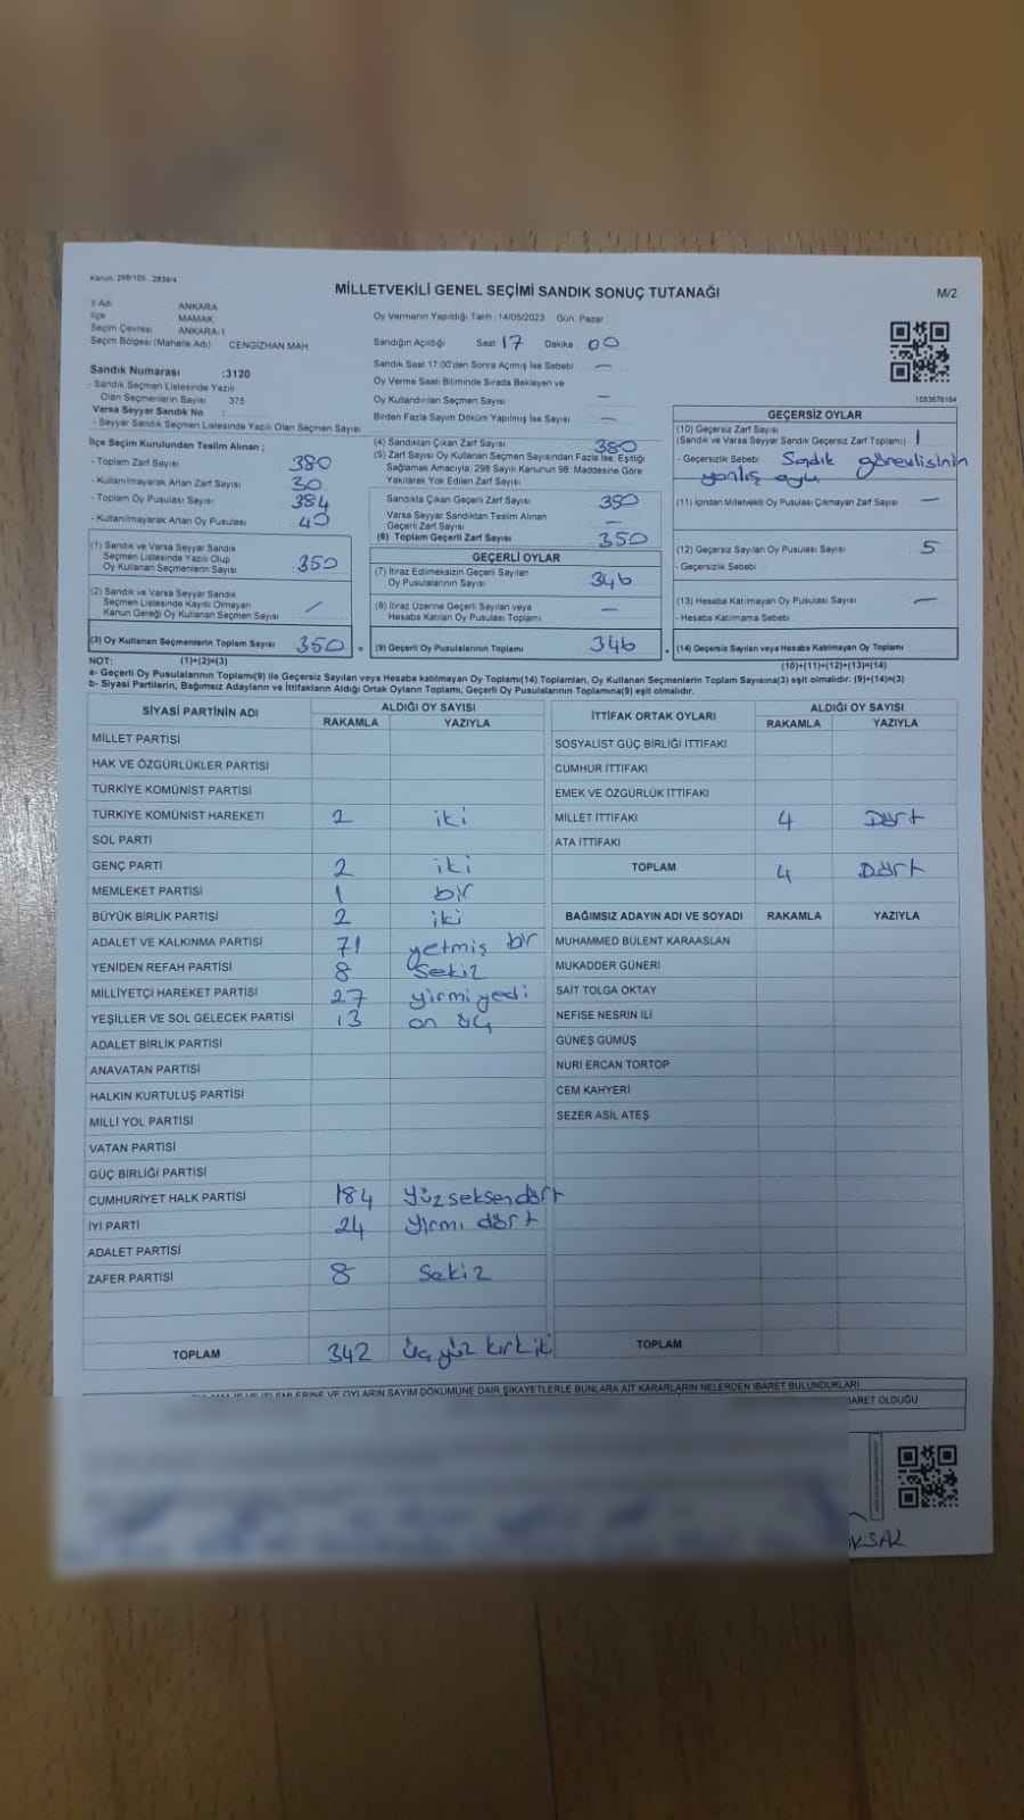 Kanun: 298/105 - 2839/4
MİLLETVEKİLİ GENEL SEÇİMİ SANDIK SONUÇ TUTANAĞI
M/2
İl Adı ANKARA
İlçe MAMAK
Seçim Çevresi ANKARA-1
Seçim Bölgesi (Mahalle Adı) CENGİZHAN MAH.
Oy Vermenin Yapıldığı Tarih : 14/05/2023 Gün: Pazar
Sandığın Açıldığı Saat 17 Dakika 00
Sandık Saat 17:00'den Sonra Açılmış İse Sebebi —
Oy Verme Saati Bitiminde Sırada Bekleyen ve
Oy Kullandırılan Seçmen Sayısı —
Birden Fazla Sayım Döküm Yapılmış İse Sayısı —
Sandık Numarası :3120
- Sandık Seçmen Listesinde Yazılı
Olan Seçmenlerin Sayısı 375
Varsa Seyyar Sandık No :
- Seyyar Sandık Seçmen Listesinde Yazılı Olan Seçmen Sayısı
İlçe Seçim Kurulundan Teslim Alınan ;
- Toplam Zarf Sayısı 380
- Kullanılmayarak Artan Zarf Sayısı 30
- Toplam Oy Pusulası Sayısı 384
- Kullanılmayarak Artan Oy Pusulası 40
(1) Sandık ve Varsa Seyyar Sandık
Seçmen Listesinde Yazılı Olup
Oy Kullanan Seçmenlerin Sayısı 350
(2) Sandık ve Varsa Seyyar Sandık
Seçmen Listesinde Kayıtlı Olmayan
Kanun Gereği Oy Kullanan Seçmen Sayısı /
(3) Oy Kullanan Seçmenlerin Toplam Sayısı 350
(1)+(2)=(3)
(4) Sandıktan Çıkan Zarf Sayısı
(5) Zarf Sayısı Oy Kullanan Seçmen Sayısından Fazla İse, Eşitliği
Sağlamak Amacıyla; 298 Sayılı Kanunun 98. Maddesine Göre
Yakılarak Yok Edilen Zarf Sayısı
Sandıkta Çıkan Geçerli Zarf Sayısı 350
Varsa Seyyar Sandıktan Teslim Alınan
Geçerli Zarf Sayısı —
(6) Toplam Geçerli Zarf Sayısı 350
GEÇERLİ OYLAR
(7) İtiraz Edilmeksizin Geçerli Sayılan
Oy Pusulalarının Sayısı 346
(8) İtiraz Üzerine Geçerli Sayılan veya
Hesaba Katılan Oy Pusulası Toplamı —
(9) Geçerli Oy Pusulalarının Toplamı 346
1083678184
GEÇERSİZ OYLAR
(10) Geçersiz Zarf Sayısı
(Sandık ve Varsa Seyyar Sandık Geçersiz Zarf Toplamı) 1
- Geçersizlik Sebebi Sandık görevlisinin
yanlış oyu
(11) İçinden Milletvekili Oy Pusulası Çıkmayan Zarf Sayısı —
(12) Geçersiz Sayılan Oy Pusulası Sayısı 5
- Geçersizlik Sebebi
(13) Hesaba Katılmayan Oy Pusulası Sayısı —
- Hesaba Katılmama Sebebi
(14) Geçersiz Sayılan veya Hesaba Katılmayan Oy Toplamı
(10)+(11)+(12)+(13)=(14)
NOT:
a- Geçerli Oy Pusulalarının Toplamı(9) ile Geçersiz Sayılan veya Hesaba katılmayan Oy Toplamı(14) Toplamları, Oy Kullanan Seçmenlerin Toplam Sayısına(3) eşit olmalıdır. (9)+(14)=(3)
b- Siyasi Partilerin, Bağımsız Adayların ve İttifakların Aldığı Ortak Oyların Toplamı, Geçerli Oy Pusulalarının Toplamına(9) eşit olmalıdır.
SİYASİ PARTİNİN ADI ALDIĞI OY SAYISI
RAKAMLA YAZIYLA
MİLLET PARTİSİ
HAK VE ÖZGÜRLÜKLER PARTİSİ
TÜRKİYE KOMÜNİST PARTİSİ
TÜRKİYE KOMÜNİST HAREKETİ 2 iki
SOL PARTİ
GENÇ PARTİ 2 iki
MEMLEKET PARTİSİ 1 bir
BÜYÜK BİRLİK PARTİSİ 2 iki
ADALET VE KALKINMA PARTİSİ 71 yetmiş bir
YENİDEN REFAH PARTİSİ 8 Sekiz
MİLLİYETÇİ HAREKET PARTİSİ 27 yirmi yedi
YEŞİLLER VE SOL GELECEK PARTİSİ 13 on üç
ADALET BİRLİK PARTİSİ
ANAVATAN PARTİSİ
HALKIN KURTULUŞ PARTİSİ
MİLLİ YOL PARTİSİ
VATAN PARTİSİ
GÜÇ BİRLİĞİ PARTİSİ
CUMHURİYET HALK PARTİSİ 184 yüzseksendört
İYİ PARTİ 24 yirmi dört
ADALET PARTİSİ
ZAFER PARTİSİ 8 Sekiz
TOPLAM 342 üç yüz kırk iki
İTTİFAK ORTAK OYLARI ALDIĞI OY SAYISI
RAKAMLA YAZIYLA
SOSYALİST GÜÇ BİRLİĞİ İTTİFAKI
CUMHUR İTTİFAKI
EMEK VE ÖZGÜRLÜK İTTİFAKI
MİLLET İTTİFAKI 4 Dört
ATA İTTİFAKI
TOPLAM 4 Dört
BAĞIMSIZ ADAYIN ADI VE SOYADI RAKAMLA YAZIYLA
MUHAMMED BÜLENT KARAASLAN
MUKADDER GÜNERİ
SAİT TOLGA OKTAY
NEFİSE NESRİN İLİ
GÜNEŞ GÜMÜŞ
NURİ ERCAN TORTOP
CEM KAHYERİ
SEZER ASİL ATEŞ
TOPLAM
VE OYLARIN SAYIM DÖKÜMÜNE DAİR ŞİKAYETLERLE BUNLARA AİT KARARLARIN NELERDEN İBARET BULUNDUKLARI
İBARET OLDUĞU